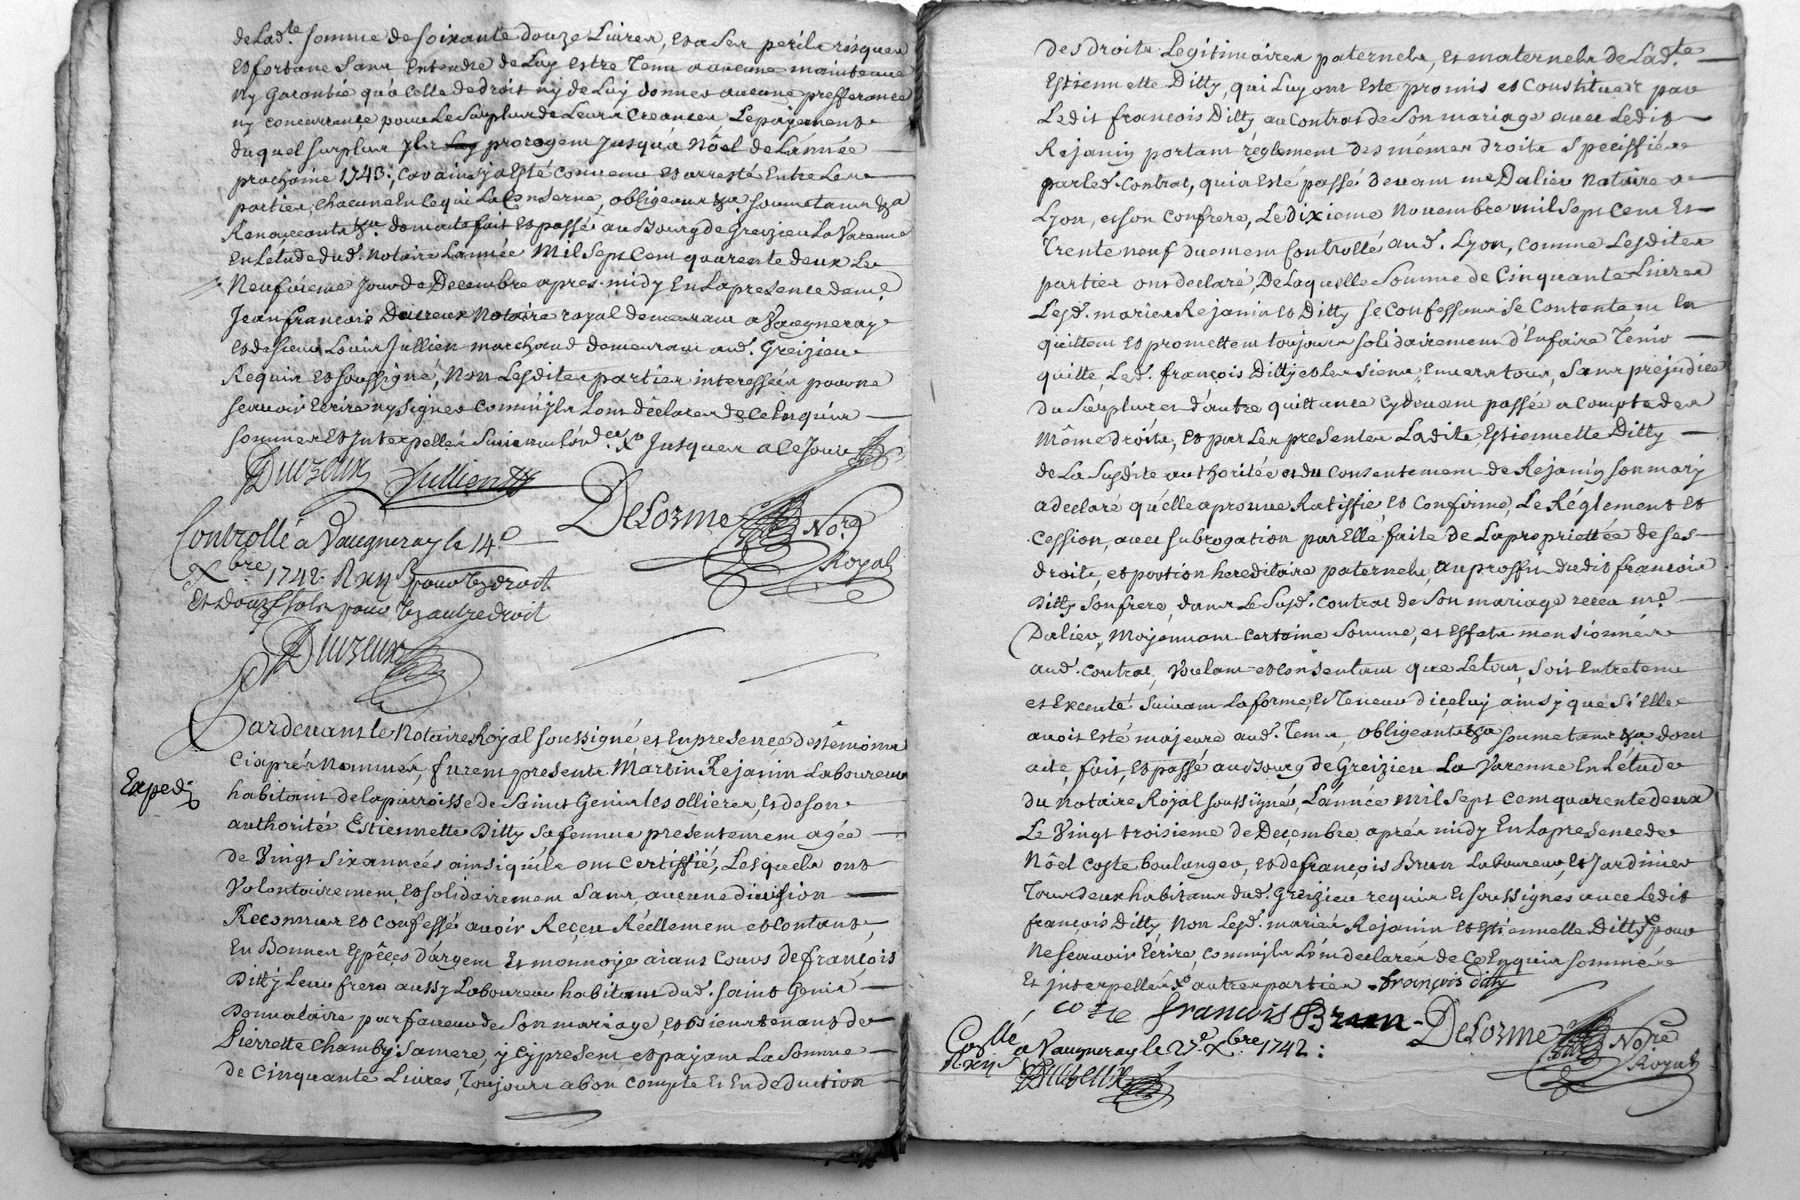 de Lad.te somme de soixante douze Livres, et a ses perils risques
et fortune sans entendre de Luy estre tenu a aucune maintenue
ny Garantie qu'a Celle de droit ny de Luy donner aucune prefferance
ny concurrance pour Le Surplus de Leurs Creances Le payement
duquel surplus ils prorogent jusqu'a Nôel de L'année
prochaine 1743; Car ainsy a esté convenu et arresté Entre Les
parties, chacune en ce qui La Conserne, obligeant &a soumetans &a
Renonceants &a dont acte fait et passé au Bourg de Greizieu La Varenne
En L'etude dud. Notaire L'année Mil Sept Cent quarente deux Le
Neufvieme jour de Decembre apres midy En La presence de me.
Jean francois Duzeux Notaire royal demeurant a Vaugneray
et de sieur Louis Jullien marchand demeurant aud. Greizieu
Requis et soussigné, Non Lesdites parties interessées pour ne
scavoir Ecrire ny signer comm'ils L'ont declarés de ce Enquis
sommés et Interpellés Suivant L'ord.ce Jusques a ce jour
Duzeux Jullien
DeLorme No.re
Royal
Controllé a Vaugneray le 14.e
Xbre 1742. Rxx s pour les droit
et douze sols pour les autre droit
Duzeux
Pardevant le Notaire Royal soussigné et En presence des têmoins
Ciaprés Nommés, furent presents Martin Rejanin Laboureur
Exped.
habitant de la parroisse de Saint Genis les ollieres, et de son
authorité Estiennette Ditty sa femme presentement agée
de Vingt Six années ainsi qu'ils ont Certiffié, Lesquels ont
Volontairement, et solidairement sans aucune division
Reconnus et Confessé avoir Reçeu Réellement et Contant,
En Bonnes Espêces d'argent et monnoye aiant Cours de françois
Ditty Leur frere aussy Laboureur habitant dud. Saint Genis
Donnataire par faveur de Son mariage, et bientenant de
Pierrette Chamby sa mere, y cy present, et payant La Somme
de Cinquante Livres, Toujours a bon Compte et En deduction
des droits Legitimaires paternels, et maternels de Lad.te
Estiennette Ditty, qui Luy ont Esté promis et Constitués par
Ledit françois Ditty au Contrat de Son mariage avec Ledit
Rejanin portant réglement des mémes droits Speciffiés
par led. Contrat, qui a Esté passé devant me Dalier Notaire a
Lyon, et son Confrere, Le dixieme Novembre mil Sept Cent Et
Trente neuf duement Controllé aud. Lyon, comme Lesdites
parties ont declaré, De Laquelle Somme de Cinquante Livres
Lesd. mariés Rejanin et Ditty se Confessant se Contenter en
quittent et promettent toujours solidairement d'En faire Tenir
quitte, Led. françois Ditty et les siens, Envers tous, Sans préjudice
du Surplus et d'autre quittance Cydevant passée a Compte des
Même droits, et par Les presentes Ladite Estiennette Ditty
de La Susdite authoritée et du Consentement de Rejanin son mary
a declaré qu'elle aprouve Ratiffie et Confirme, Le Réglement et
Cession, avec subrogation par Elle faite de La propriettée de ses
droits, et portion hereditaire paternels, au proffit dudit francois
Ditty Son frere, dans Le Susd. Contrat de Son mariage receu me.
Dalier, Moyennant Certaine Somme, et Effets mensionnés
aud. Contrat, Voulant et Consentant que Le tout, Soit Entretenu
et Executé Suivant La forme, et Teneur d'iceluy ainsy que Si Elle
avoit Esté majeure aud. Tems, obligeants &a soumetans &a dont
acte, fait, et passé au Bourg de Greizieu La Varenne En L'étude
du Notaire Royal soussigné, L'année mil Sept Cent quarente deux
Le Vingt troisieme de Decembre aprés midy En La presence de
Nôel Coste boulanger, et de françois Brun Laboureur, et Jardinier
Tous deux habitans dud. Greizieu requis et soussignés avec Ledit
françois Ditty, Non Lesd. mariés Rejanin et Estiennette Ditty pour
Ne scavoir Ecrire, comm'ils L'ont declarés de ce Enquis sommés
Et interpellés autres parties françois ditty
coste francois Brun DeLorme No.re
Royal
Co.llé a Vaugneray le 27.e Xbre 1742:
Rxij s
Duzeux